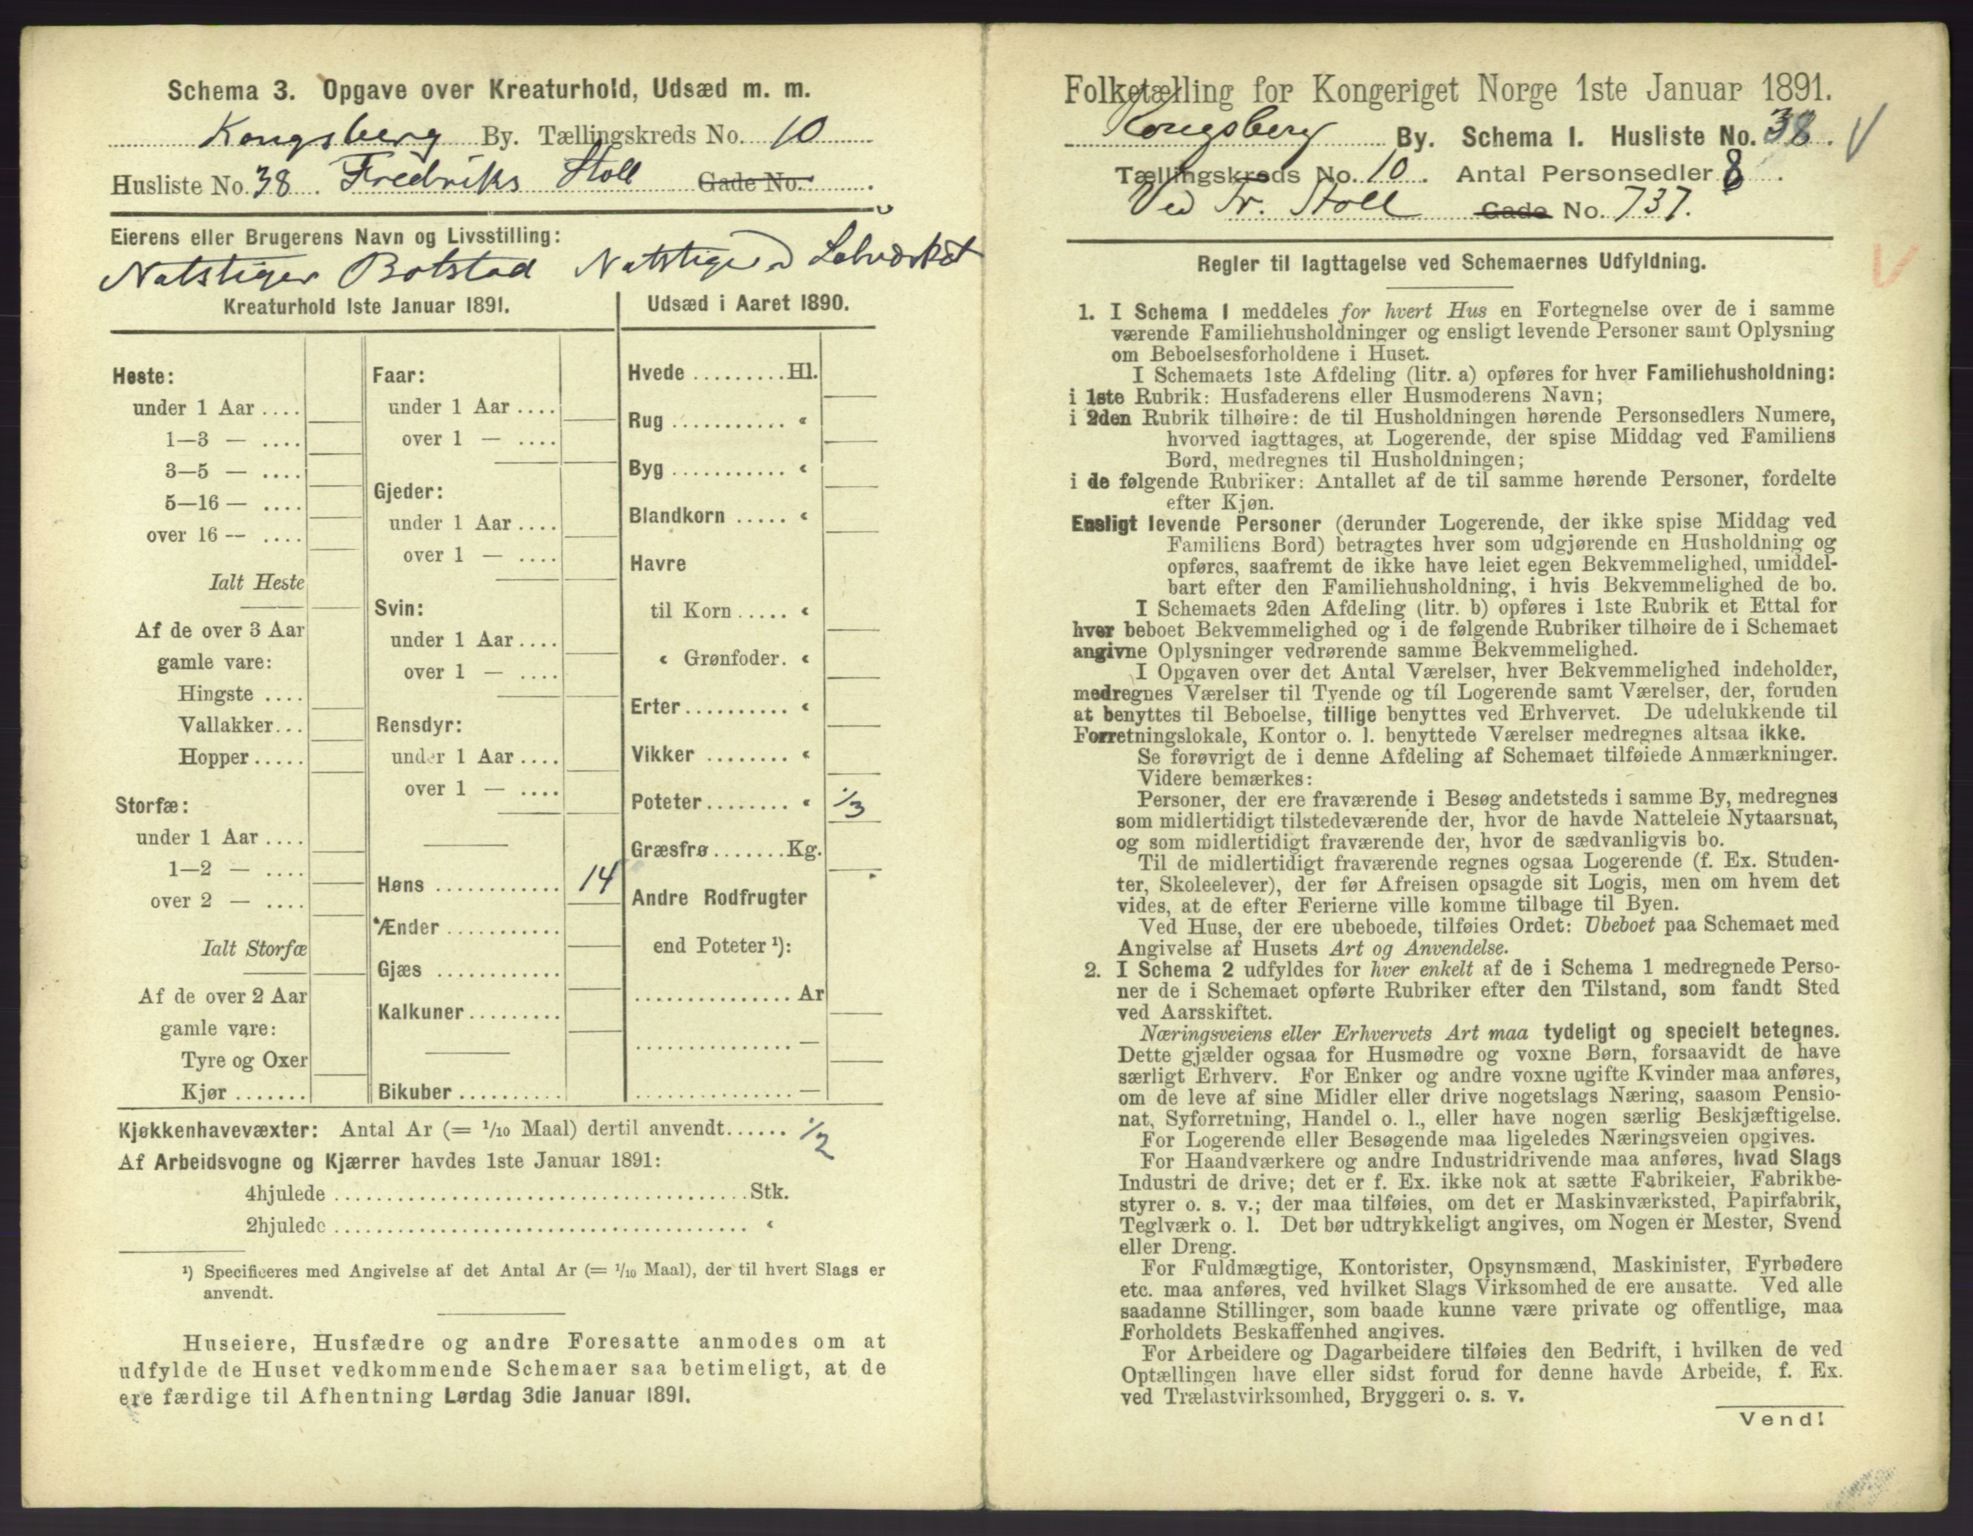 Schema 3. Opgave over Kreaturhold, Udsæd m. m.
Kongsberg By. Tællingskreds No. 10
Husliste No. 38. Fredriks Stoll Gade No.
Eierens eller Brugerens Navn og Livsstilling:
Natstiger Botstad Natstiger
Kreaturhold 1ste Januar 1891.
Heste:
under 1 Aar ....
1—3 — ....
3—5 — ....
5—16 — ....
over 16 — ....
Ialt Heste
Af de over 3 Aar
gamle vare:
Hingste ....
Vallakker...
Hopper.....
Storfæ:
under 1 Aar ....
1—2 — ....
over 2 — ....
Ialt Storfæ
Af de over 2 Aar
gamle vare:
Tyre og Oxer
Kjør .......
Faar:
under 1 Aar ....
over 1 — ....
Gjeder:
under 1 Aar ....
over 1 — ....
Svin:
under 1 Aar ....
over 1 — ....
Rensdyr:
under 1 Aar ....
over 1 — ....
Høns ............ 14
Ænder ...........
Gjæs ............
Kalkuner.........
Bikuber ..........
Udsæd i Aaret 1890.
Hvede .........Hl.
Rug ........... «
Byg ........... «
Blandkorn ..... «
Havre
til Korn ..... «
« Grønfoder. «
Erter.......... «
Vikker ........ «
Poteter........ « 1/3
Græsfrø .......Kg.
Andre Rodfrugter
end Poteter ¹):
............... Ar
............... —
............... —
Kjøkkenhavevæxter: Antal Ar (= 1/10 Maal) dertil anvendt...... 1/2
Af Arbeidsvogne og Kjærrer havdes 1ste Januar 1891:
4hjulede ......................................Stk.
2hjulede ...................................... «
¹) Specificeres med Angivelse af det Antal Ar (= 1/10 Maal), der til hvert Slags er
anvendt.
Huseiere, Husfædre og andre Foresatte anmodes om at
udfylde de Huset vedkommende Schemaer saa betimeligt, at de
ere færdige til Afhentning Lørdag 3die Januar 1891.
Folketælling for Kongeriget Norge 1ste Januar 1891.
Kongsberg By. Schema I. Husliste No. 38.
Tællingskreds No. 10. Antal Personsedler 8.
Ved Fr. Stoll Gade No. 737.
Regler til Iagttagelse ved Schemaernes Udfyldning.
1. I Schema 1 meddeles for hvert Hus en Fortegnelse over de i samme
værende Familiehusholdninger og ensligt levende Personer samt Oplysning
om Beboelsesforholdene i Huset.
I Schemaets 1ste Afdeling (litr. a) opføres for hver Familiehusholdning:
i 1ste Rubrik: Husfaderens eller Husmoderens Navn;
i 2den Rubrik tilhøire: de til Husholdningen hørende Personsedlers Numere,
hvorved iagttages, at Logerende, der spise Middag ved Familiens
Bord, medregnes til Husholdningen;
i de følgende Rubriker: Antallet af de til samme hørende Personer, fordelte
efter Kjøn.
Ensligt levende Personer (derunder Logerende, der ikke spise Middag ved
Familiens Bord) betragtes hver som udgjørende en Husholdning og
opføres, saafremt de ikke have leiet egen Bekvemmelighed, umiddel-
bart efter den Familiehusholdning, i hvis Bekvemmelighed de bo.
I Schemaets 2den Afdeling (litr. b) opføres i 1ste Rubrik et Ettal for
hver beboet Bekvemmelighed og i de følgende Rubriker tilhøire de i Schemaet
angivne Oplysninger vedrørende samme Bekvemmelighed.
I Opgaven over det Antal Værelser, hver Bekvemmelighed indeholder,
medregnes Værelser til Tyende og til Logerende samt Værelser, der, foruden
at benyttes til Beboelse, tillige benyttes ved Erhvervet. De udelukkende til
Forretningslokale, Kontor o. l. benyttede Værelser medregnes altsaa ikke.
Se forøvrigt de i denne Afdeling af Schemaet tilføiede Anmærkninger.
Videre bemærkes:
Personer, der ere fraværende i Besøg andetsteds i samme By, medregnes
som midlertidigt tilstedeværende der, hvor de havde Natteleie Nytaarsnat,
og som midlertidigt fraværende der, hvor de sædvanligvis bo.
Til de midlertidigt fraværende regnes ogsaa Logerende (f. Ex. Studen-
ter, Skoleelever), der før Afreisen opsagde sit Logis, men om hvem det
vides, at de efter Ferierne ville komme tilbage til Byen.
Ved Huse, der ere ubeboede, tilføies Ordet: Ubeboet paa Schemaet med
Angivelse af Husets Art og Anvendelse.
2. I Schema 2 udfyldes for hver enkelt af de i Schema 1 medregnede Perso-
ner de i Schemaet opførte Rubriker efter den Tilstand, som fandt Sted
ved Aarsskiftet.
Næringsveiens eller Erhvervets Art maa tydeligt og specielt betegnes.
Dette gjælder ogsaa for Husmødre og voxne Børn, forsaavidt de have
særligt Erhverv. For Enker og andre voxne ugifte Kvinder maa anføres,
om de leve af sine Midler eller drive nogetslags Næring, saasom Pensio-
nat, Syforretning, Handel o. l., eller have nogen særlig Beskjæftigelse.
For Logerende eller Besøgende maa ligeledes Næringsveien opgives.
For Haandværkere og andre Industridrivende maa anføres, hvad Slags
Industri de drive; det er f. Ex. ikke nok at sætte Fabrikeier, Fabrikbe-
styrer o. s. v.; der maa tilføies, om det er Maskinværksted, Papirfabrik,
Teglværk o. l. Det bør udtrykkeligt angives, om Nogen er Mester, Svend
eller Dreng.
For Fuldmægtige, Kontorister, Opsynsmænd, Maskinister, Fyrbødere
etc. maa anføres, ved hvilket Slags Virksomhed de ere ansatte. Ved alle
saadanne Stillinger, som baade kunne være private og offentlige, maa
Forholdets Beskaffenhed angives.
For Arbeidere og Dagarbeidere tilføies den Bedrift, i hvilken de ved
Optællingen have eller sidst forud for denne havde Arbeide, f. Ex.
ved Trælastvirksomhed, Bryggeri o. s. v.
Vend!